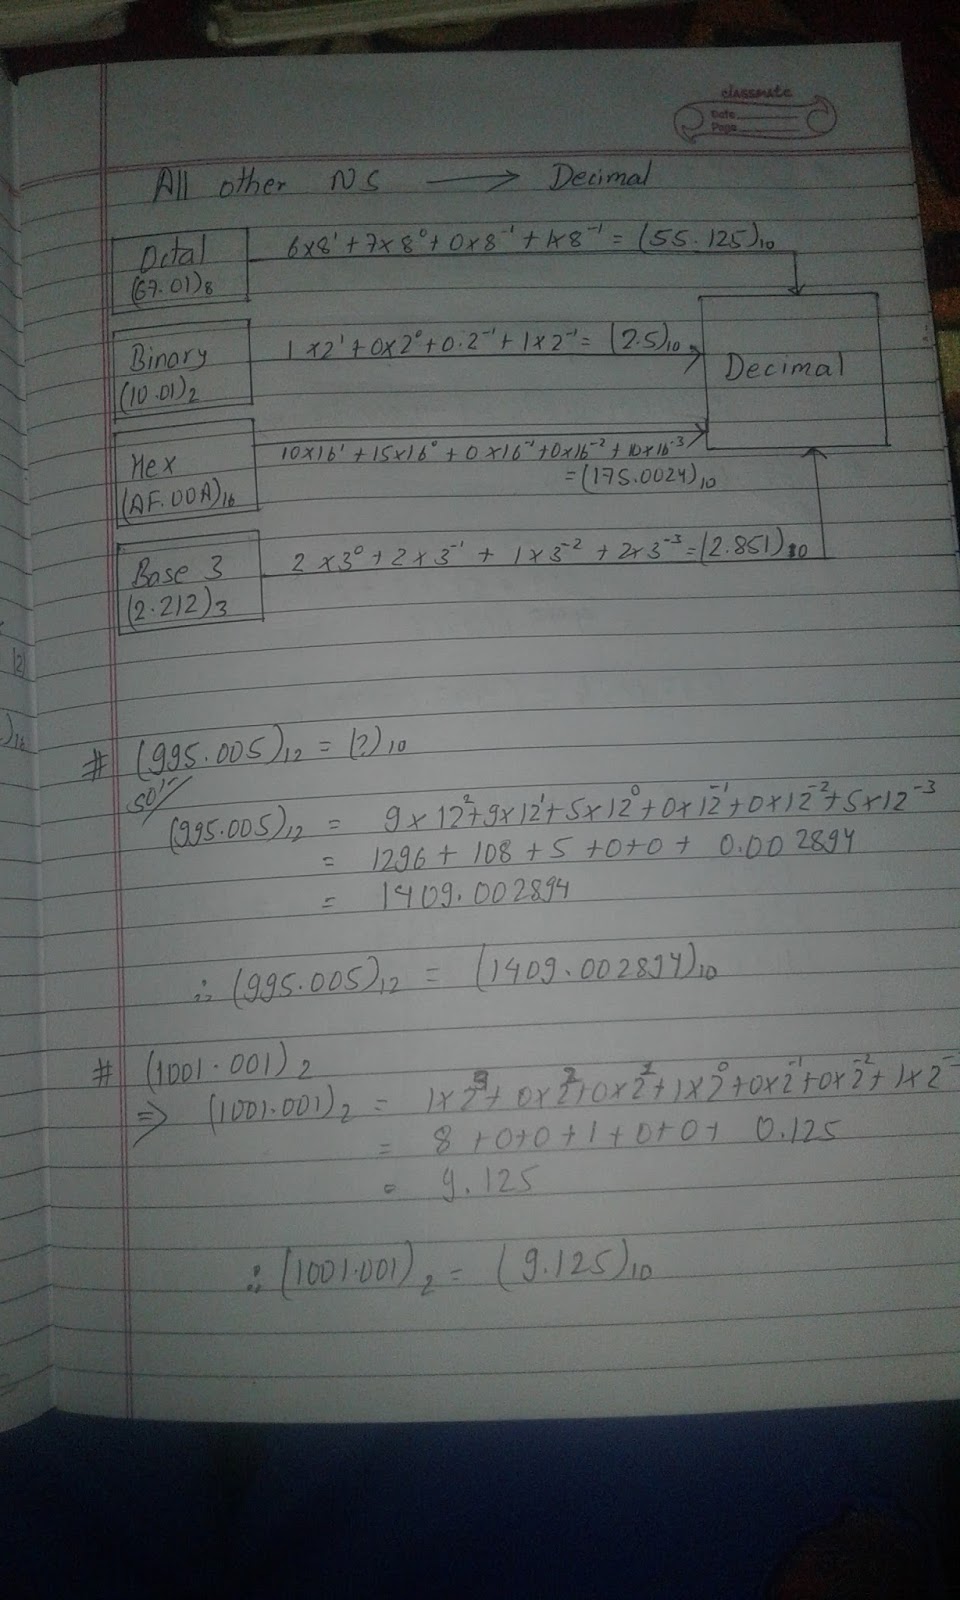 classmate
Date
Page
All other NS → Decimal
Octal
(67.01)₈
6×8¹ + 7×8⁰ + 0×8⁻¹ + 1×8⁻¹ = (55.125)₁₀
Binary
(10.01)₂
1×2¹ + 0×2⁰ + 0.2⁻¹ + 1×2⁻¹ = (2.5)₁₀
Decimal
Hex
(AF.00A)₁₆
10×16¹ + 15×16⁰ + 0×16⁻¹ + 0×16⁻² + 10×16⁻³
= (175.0024)₁₀
Base 3
(2.212)₃
2×3⁰ + 2×3⁻¹ + 1×3⁻² + 2×3⁻³ = (2.851)₁₀
# (995.005)₁₂ = (?)₁₀
Solⁿ
(995.005)₁₂ = 9×12² + 9×12¹ + 5×12⁰ + 0×12⁻¹ + 0×12⁻² + 5×12⁻³
= 1296 + 108 + 5 + 0 + 0 + 0.002894
= 1409.002894
∴ (995.005)₁₂ = (1409.002894)₁₀
# (1001.001)₂
⇒ (1001.001)₂ = 1×2³ + 0×2² + 0×2¹ + 1×2⁰ + 0×2⁻¹ + 0×2⁻² + 1×2⁻
= 8 + 0 + 0 + 1 + 0 + 0 + 0.125
= 9.125
∴ (1001.001)₂ = (9.125)₁₀